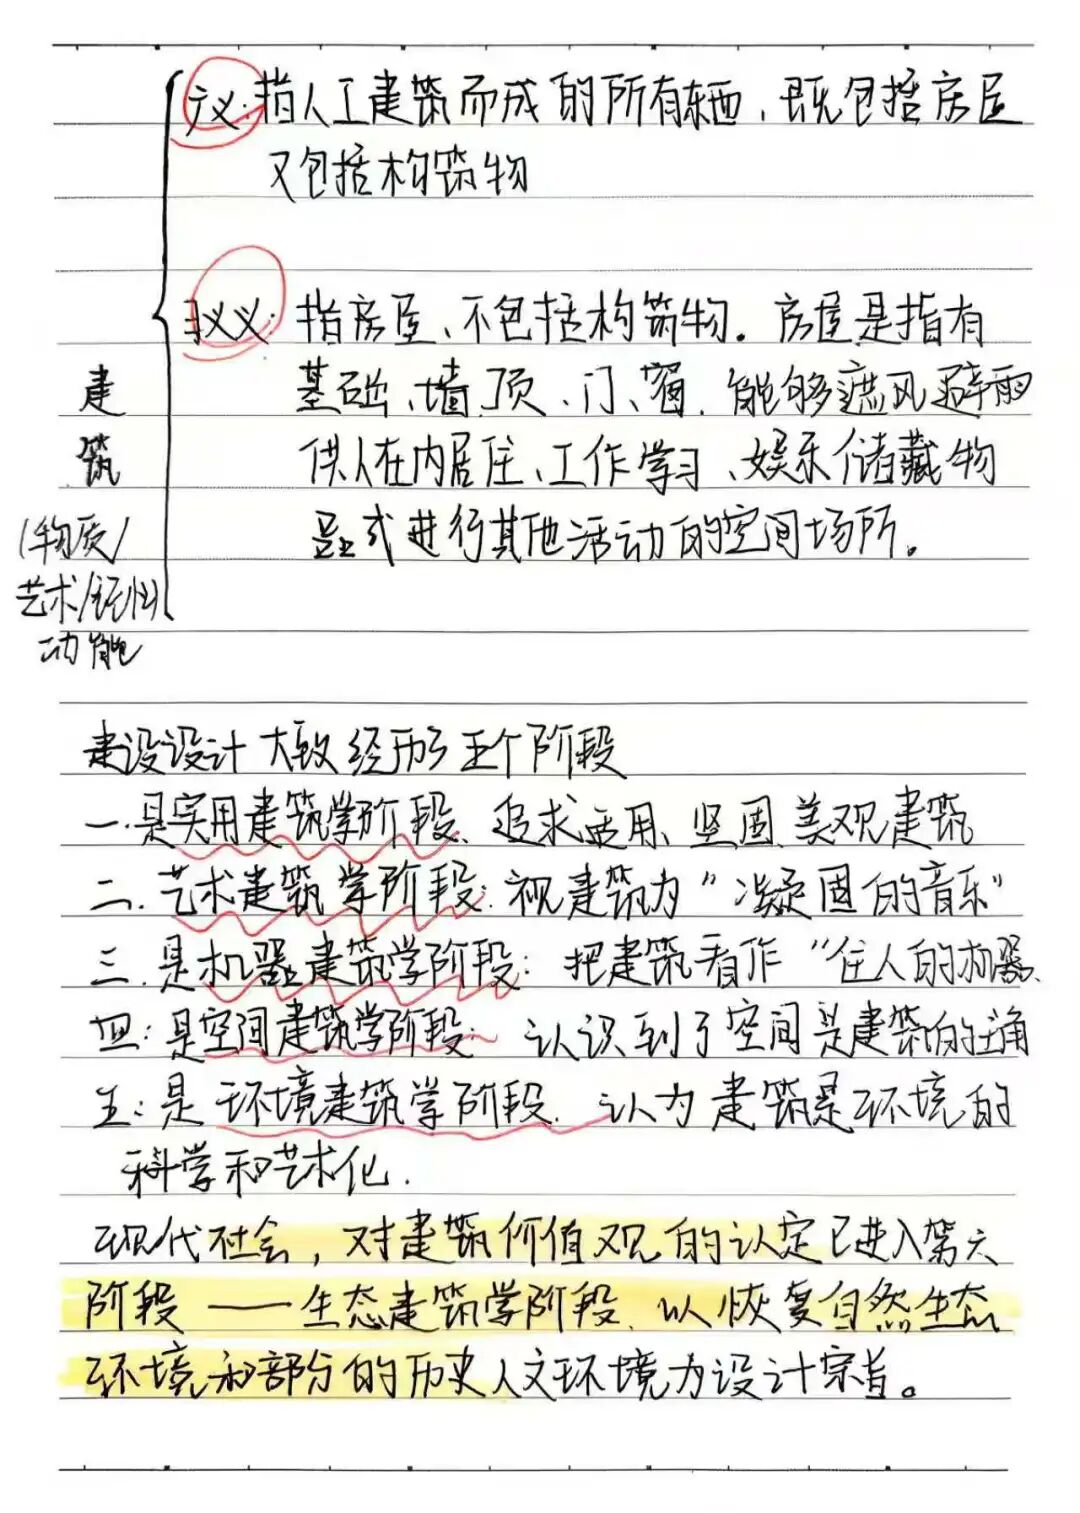 广义:指人工建筑而成的所有东西、既包括房屋
又包括构筑物
狭义:指房屋、不包括构筑物。房屋是指有
基础、墙、顶、门、窗,能够遮风避雨
供人在内居住、工作学习、娱乐储藏物
品或进行其他活动的空间场所。
建
筑
(物质/
艺术/
功能
建设设计大致经历了五个阶段
一.是实用建筑学阶段、追求适用、坚固、美观建筑
二.艺术建筑学阶段:视建筑为“凝固的音乐”
三.是机器建筑学阶段:把建筑看作“住人的机器、
四:是空间建筑学阶段:认识到了空间是建筑的主角
五:是环境建筑学阶段.认为建筑是环境的
科学和艺术化.
现代社会,对建筑价值观的认定已进入第六
阶段——生态建筑学阶段、以恢复自然生态
环境和部分的历史人文环境为设计宗旨。